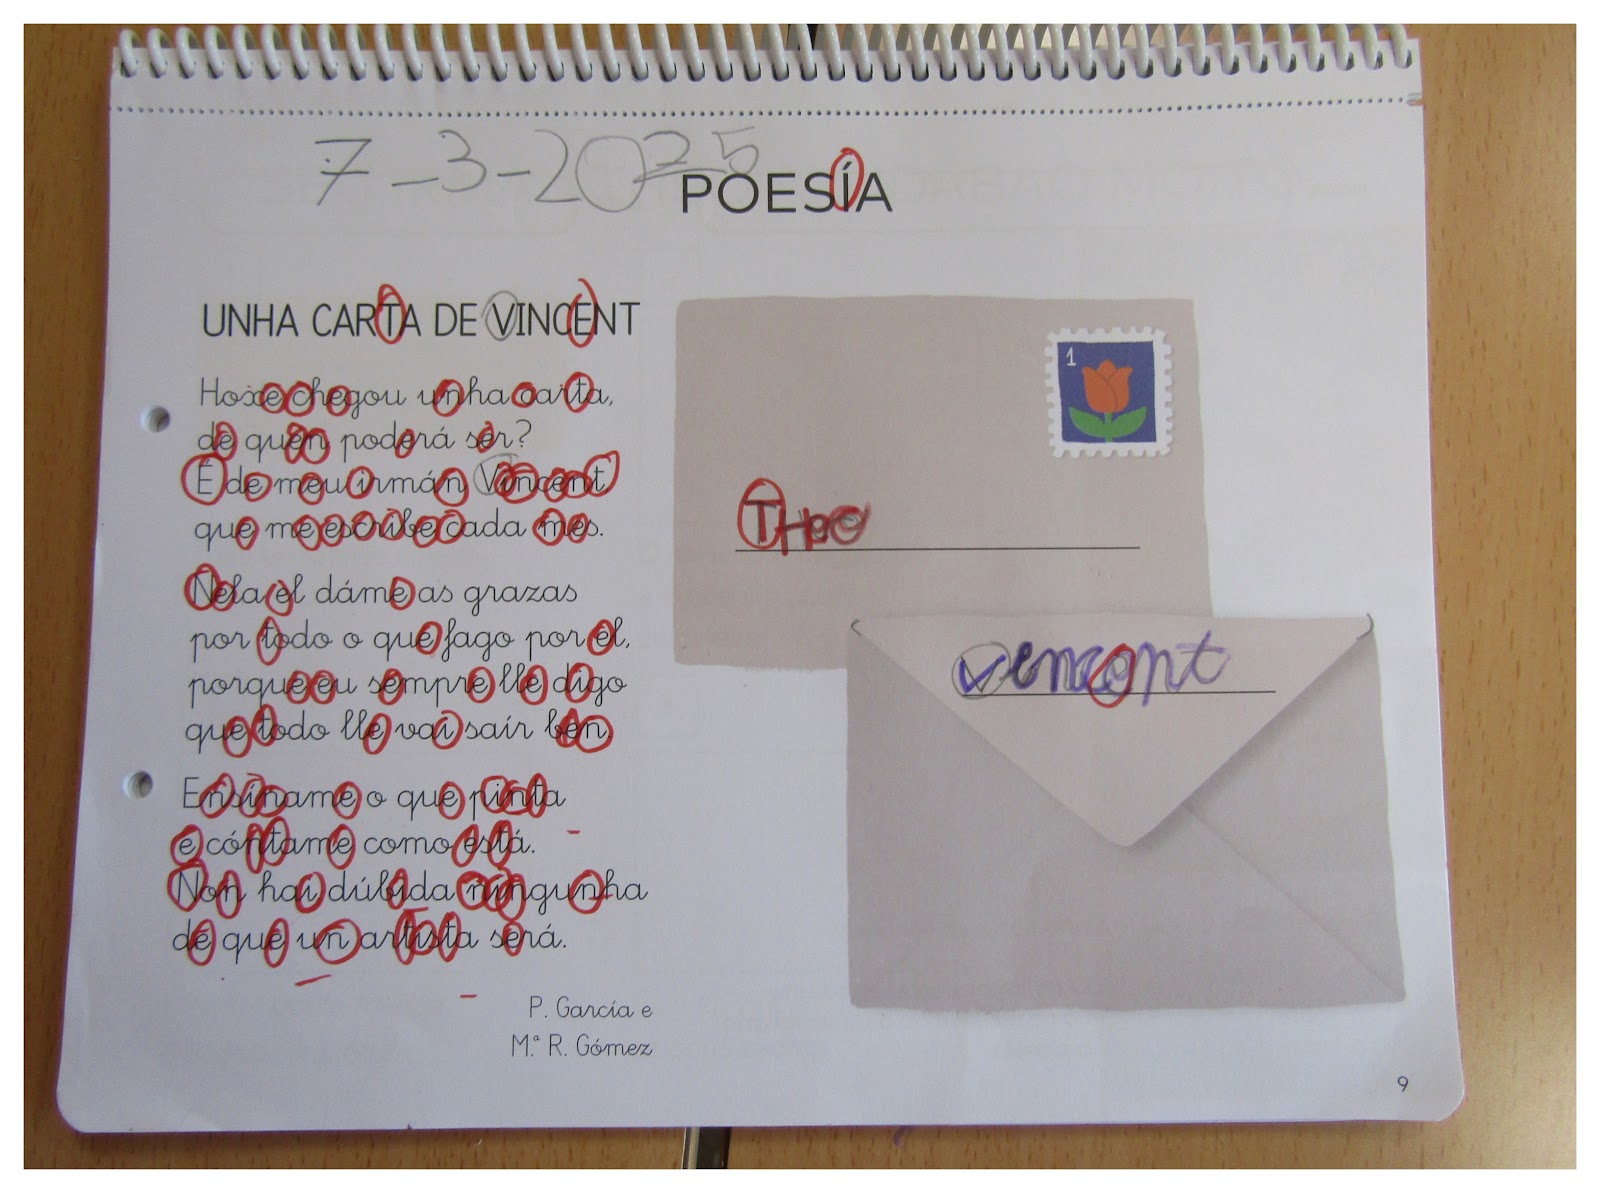 7-3-2025
POESÍA
UNHA CARTA DE VINCENT
Hoxe chegou unha carta,
de quen poderá ser?
É de meu irmán Vincent
que me escribe cada mes.
Nela el dáme as grazas
por todo o que fago por el,
porque eu sempre lle digo
que todo lle vai saír ben.
Ensíname o que pinta
e cóntame como está.
Non hai dúbida ningunha
de que un artista será.
P. García e
M.ª R. Gómez
1
THeo
Vincent
9